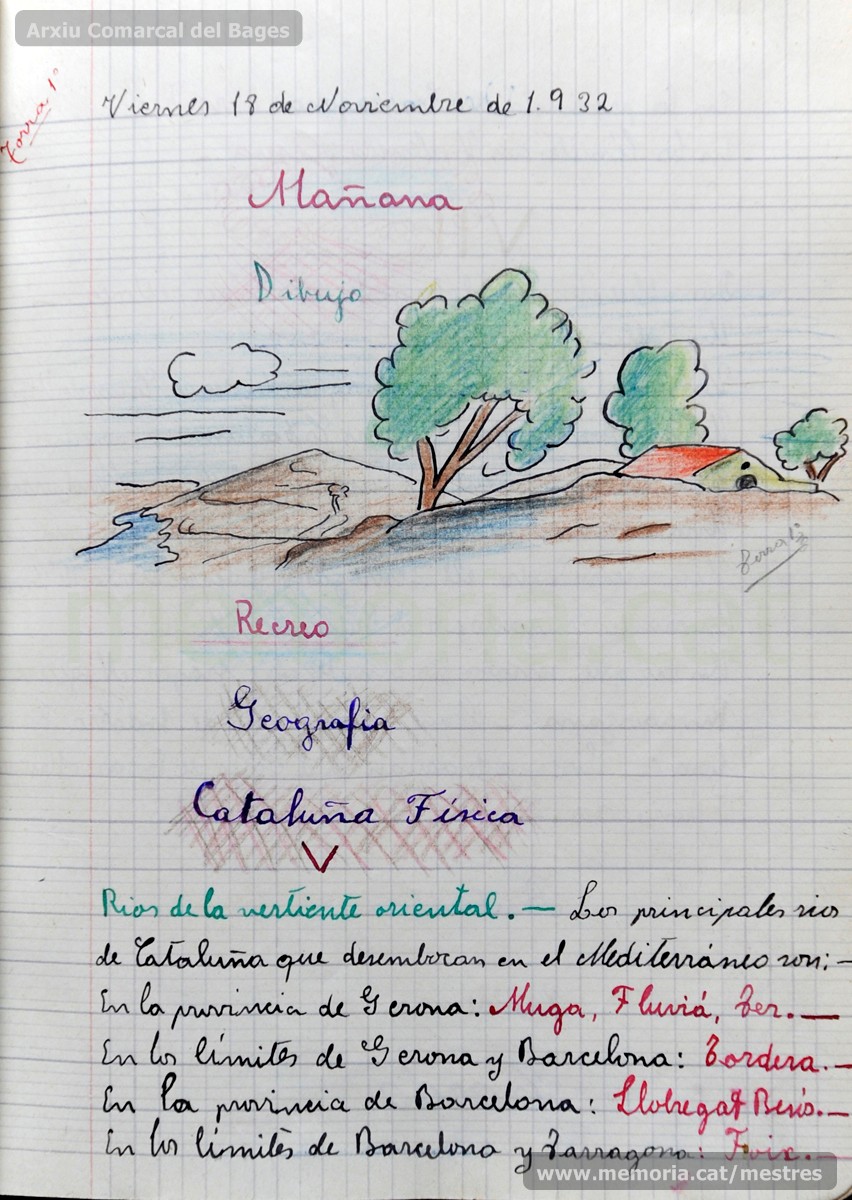 Arxiu Comarcal del Bages
Torra 1º
Viernes 18 de Noviembre de 1.932
Mañana
Dibujo
Torra 1º
Recreo
Geografia
Cataluña Física
V
Rios de la vertiente oriental.— Los principales rios
de Cataluña que desembocan en el Mediterráneo son:—
En la provincia de Gerona: Muga, Fluviá, Ter.—
En los límites de Gerona y Barcelona: Tordera.—
En la provincia de Barcelona: Llobregat Besós.—
En los límites de Barcelona y Tarragona: Foix.—
www.memoria.cat/mestres